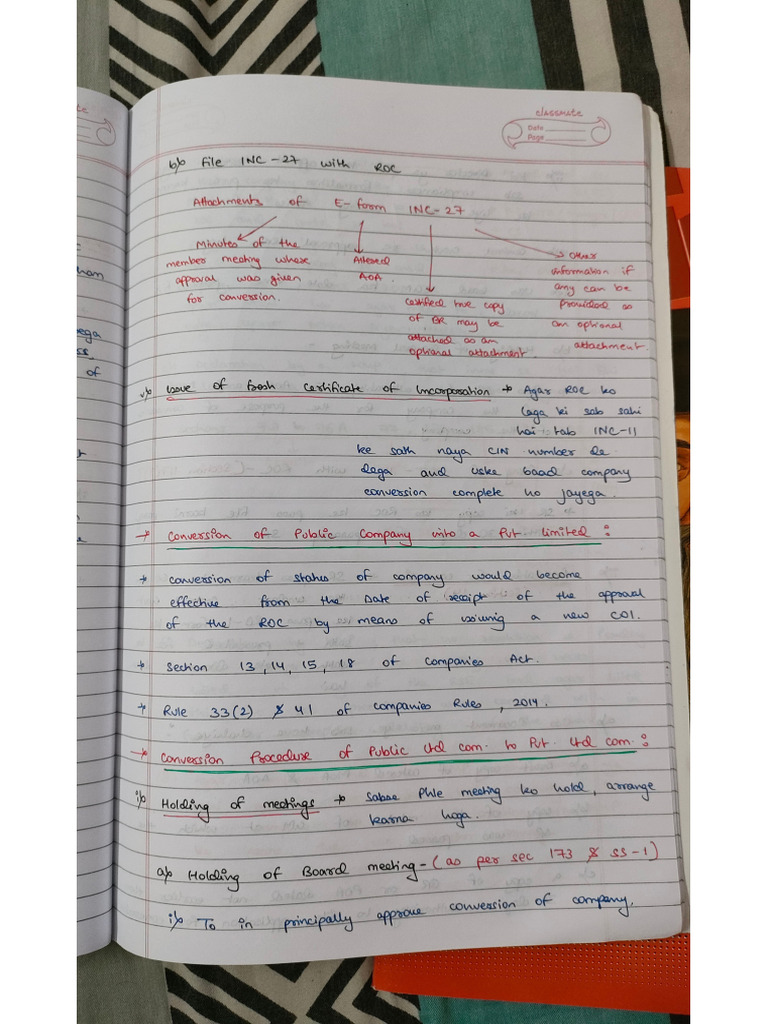 classmate
Date
Page
b/o File INC-27 with ROC
Attachments of E-form INC-27
Minutes of the
member meeting where
approval was given
for conversion.
Altered
AOA
Certified true copy
of BR may be
attached as an
optional attachment.
Other
information if
any can be
provided as
an optional
attachment.
v/o Issue of fresh Certificate of Incorporation → Agar ROC ko
laga ki sab sahi
hai tab INC-11
ke sath naya CIN number de
dega and uske baad company
conversion complete ho jayega.
→ Conversion of Public Company into a Pvt limited :
→ conversion of status of company would become
effective from the Date of receipt of the approval
of the ROC by means of issuing a new COI.
→ Section 13, 14, 15, 18 of Companies Act.
→ Rule 33(2) & 41 of companies Rules, 2014.
→ Conversion Procedure of Public Ltd com. to Pvt. Ltd com. :
i/o Holding of meetings → Sabse Phle meeting ko hold, arrange
karna hoga.
a/o Holding of Board meeting - (as per sec 173 & SS-1)
i/o To in principally approve conversion of company.